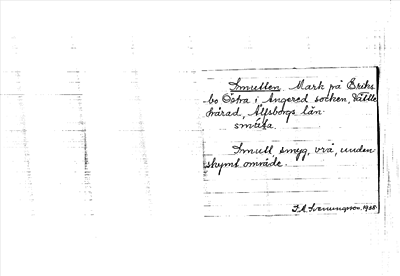 Smutten. Mark på Eriks
bo Östra i Angered socken, Vättle
härad, Älfsborgs län.
smút:a.
Smutt smyg, vrå, unden
skymt område.
J.A. Svenungsson. 1935